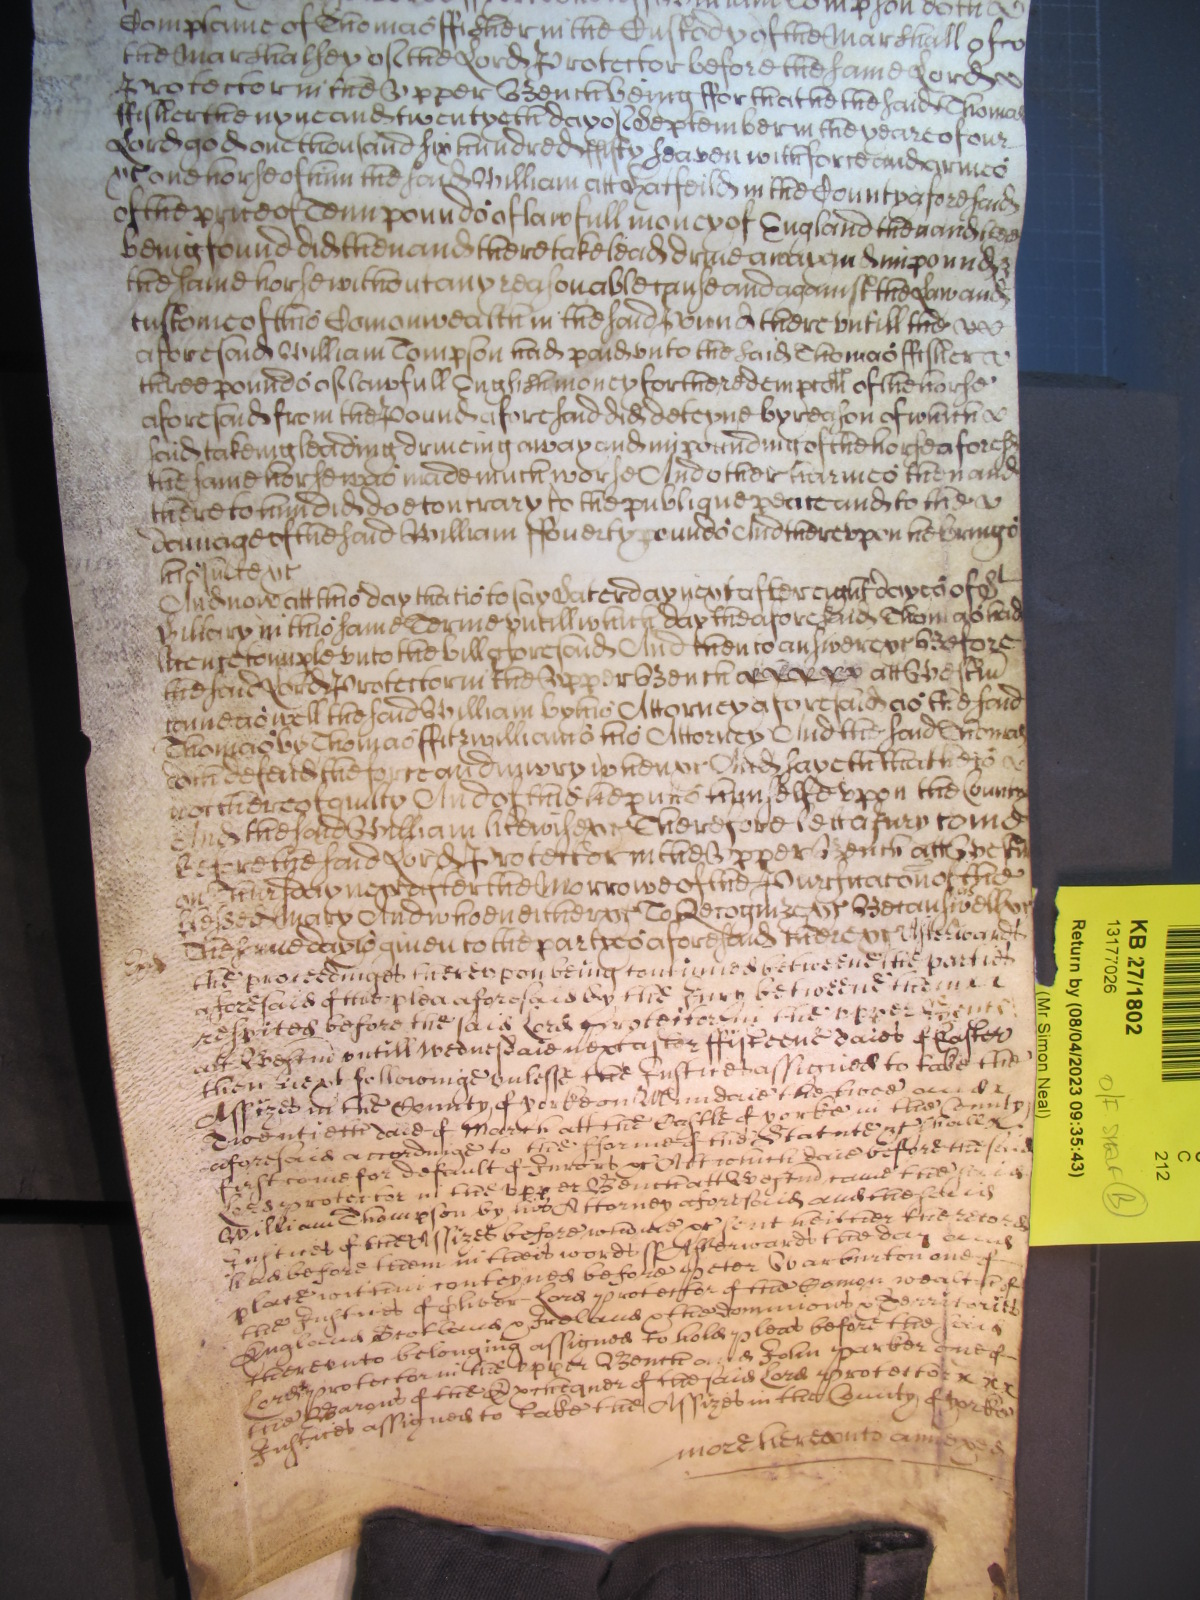 Complaine of Thomas ffisher in the Custody of the Marshall of
the Marshalsey of the Lord Protector before the same Lord
Protector in the Upper Bench being ffor that he the said Thomas
ffisher the nyne and twentyeth day of September in the yeare of our
Lord god one thousand six hundred ffifty seaven with force and armes
&c one horse of him the said William att Hatfeild in the County aforesaid
of the price of Tenn pounds of lawfull money of England then and there
being found did then and there take lead drive away and impound
the same horse without any reasonable cause and against the Law and
custome of this Comonwealth in the said there untill the
aforesaid William Tompson had paid unto the said Thomas ffisher
three pounds of lawfull English money for the redempcon of the horse
aforesaid from the Pound aforesaid did deteyne by reason of which
said takeing leading driveing away and impounding of the horse aforesd
the same horse was made much worse And other harmes then and
there to him did doe contrary to the publique peace and to the
damage of the said William ffourty pounds And thereupon he brings
his suite &c
And now att this day that is to say Saterday next after eight dayes of St
Hillary in this same Terme untill which day the aforesaid Thomas had
license to imple unto the bill aforesaid And then to answere &c Before
the said Lord Protector in the Upper Bench att Westm
came as well the said William by his Attorney aforesaid as the said
Thomas by Thomas ffitzwilliams his Attorney And the said Thomas
doth defend the force and iniury when &c And sayeth that he is
not thereof guilty And of this he puts himselfe upon the Country
And the said William likewise &c Therefore let a Jury come
before the said Lord Protector in the Upper Bench att Westm
on Thursday next after the Morrowe of the Purificacon of the
blessed Mary And who neither &c To Recognize &c Because as well &c
The same day is given to the partyes aforesaid there &c Afterwards
the proceedinges thereupon being continued betweene the parties
aforesaid of the plea aforesaid by the Jury betweene them
respited before the said Lord Protector in the upper Bench
att Westm untill Wednesdaie next after ffifteene daies of Easter
then next followinge unlesse the Justices assigned to take the
Assizes in the County of yorke on Mundaie the twoe and
Twentieth daie of March att the Castle of yorke in the County
aforesaid accordinge to the fforme of the Statute &c shall
first come for default of Jurors &c Att which daie before the said
Lord protector in the upper Bench att Westm came the said
William Thompson by his Attorney aforesaid and the said
Justices of the Assizes before whome &c sent heither the record
had before them in theis words ss Afterwards the day and
place within conteyned before Peter Warburton one of
the Justices of Oliver Lord protector of the Comon wealth of
England Scotland & Ireland & the dominions & Territories
thereunto belonging assigned to hold pleas before the said
Lord Protector in the upper Bench and John Parker one of
the Barons of the Exchequer of the said Lord Protector x x x
Justices assigned to take the Assizes in the County of yorke
more hereunto annexed
KB 27/1802
13177026
Return by (08/04/2023 09:35:43)
(Mr Simon Neal)
C
212
O/F STAFF B